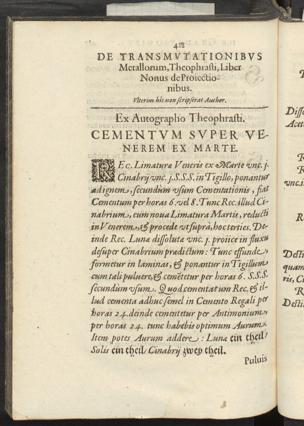 DE TRANSMVTATIONIBVS
Metallorum, Theophrasti, Liber
Nonus de Proiectio-
nibus.
Vlterius hic non scripserat Author.
Ex Autographo Theophrasti.
CEMENTVM SVPER VE-
NEREM EX MARTE.
REc. Limatura Veneris ex Marte vnc. j.
Cinabrij vnc. j. S.S.S. in Tigillo, ponantur
ad ignem, secundum vsum Cementationis, fiat
Cementum per horas 6. vel 8. Tunc Rec. illud Ci-
nabrium, cum noua Limatura Martis, reducti
in Venerem, & procede vt suprà, hoc teries. De-
inde Rec. Luna dissoluta vnc. j. proiice in fluxu
desuper Cinabrium prædictum: Tunc effunde,
formetur in laminas, & ponantur in Tigillum
cum tali puluere, & cementetur per horas 6. S.S.S.
secundum vsum. Quod cementatum Rec. & il-
lud cementa adhuc semel in Cemento Regali per
horas 24. deinde cementetur per Antimonium
per horas 24. tunc habebis optimum Aurum.
Item potes Aurum addere: Luna ein theil/
Solis ein theil/ Cinabrij zwey theil.
Puluis